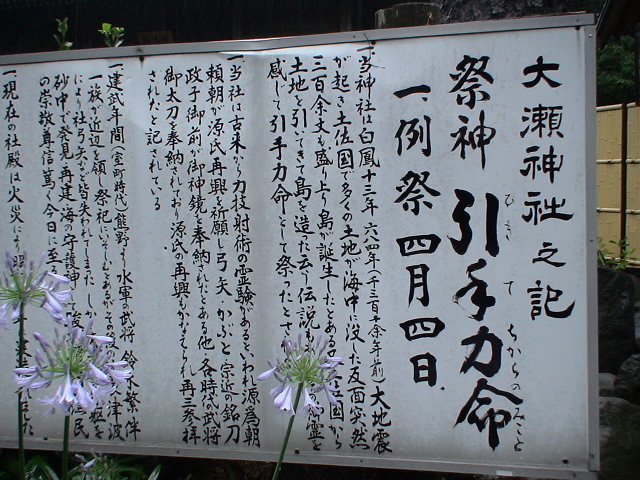 大瀬神社之記
祭神 引手力命
ひき て ちからの みこと
一、例祭 四月四日
一、当神社は白鳳十三年 六八四年(千三百十余年前)大地震
が起き土佐国で多くの土地が海中に没した反面突然
三百余丈も盛り上り島が誕生したとある 国から
土地を引いてきて島を造た云う伝説も 御霊を
感じて引手力命として祭ったとさ
一、当社は古来から力技射術の霊験があるといわれ源為朝
頼朝が源氏再興を祈願し弓、矢、かぶと、宗近の銘刀
政子御前が御神鏡を奉納されたとある他、各時代の武将
御太刀を奉納されており源氏の再興もかなえられ再三参拝
されたと記されている
一、建武年間(室町時代)熊野より水軍の武将 鈴木繁伴
一族が近辺を領し祭祀にいそしむもあいその 大津波
により社弓矢など皆失われてしまった しか を
砂中で発見再建し海の守護神と 漁民
の崇敬尊信篤く今日に至
一、現在の社殿は火災により